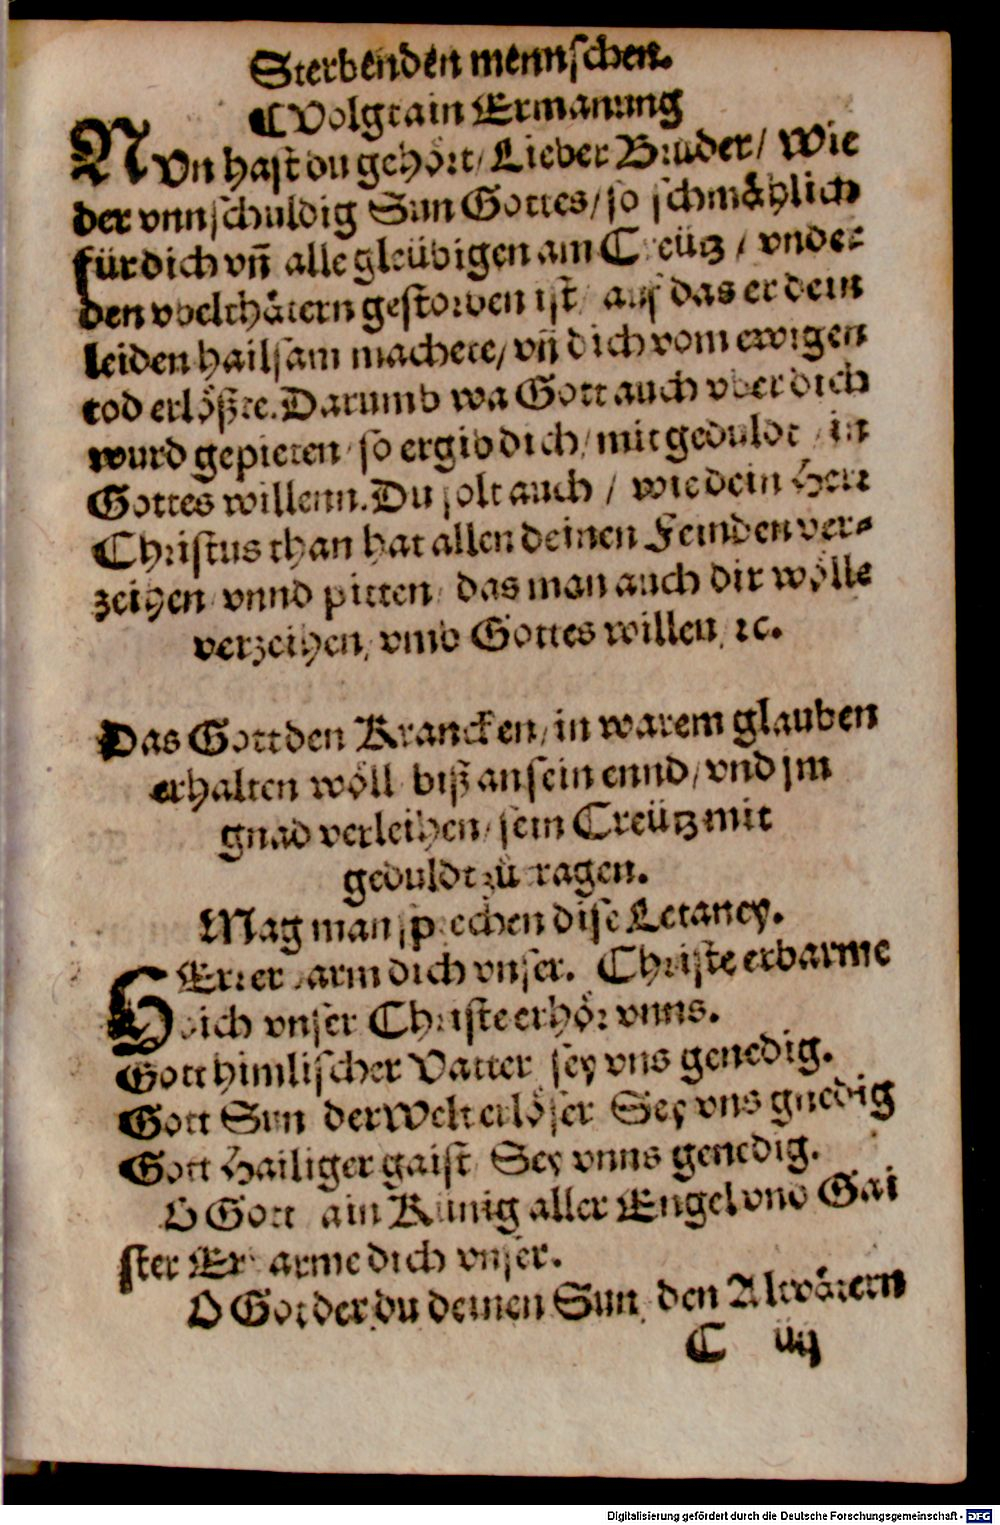 Sterbenden mennschen.
¶ Volgt ain Ermanung
NVn hast du gehört / Lieber Brůder / Wie
der vnnschuldig Sun Gottes / so schmählich
für dich vn̄ alle gleübigen am Creütz / vnder
den vbelthätern gestorben ist / auf das er dein
leiden hailsam machete / vn̄ dich vom ewigen
tod erlößte. Darumb wa Gott auch vber dich
wurd gepieten / so ergib dich / mit geduldt / in
Gottes willenn. Du solt auch / wie dein Herr
Christus than hat allen deinen Feinden ver-
zeihen / vnnd pitten / das man auch dir wölle
verzeihen / vmb Gottes willen / ꝛc.
Das Gott den Krancken / in warem glauben
erhalten wöll / biß an sein ennd / vnd jm
gnad verleihen / sein Creütz mit
geduldt zů tragen.
Mag man sprechen dise Letaney.
HErr erbarm dich vnser. Christe erbarme
dich vnser Christe erhör vnns.
Gott himlischer Vatter sey vns genedig.
Gott Sun der Welt erlöser Sey vns gnedig
Gott Hailiger gaist / Sey vnns genedig.
O Gott ain Künig aller Engel vnd Gai
ster Erbarme dich vnser.
O Got der du deinen Sun den Altvätern
C iiij
Digitalisierung gefördert durch die Deutsche Forschungsgemeinschaft - DFG